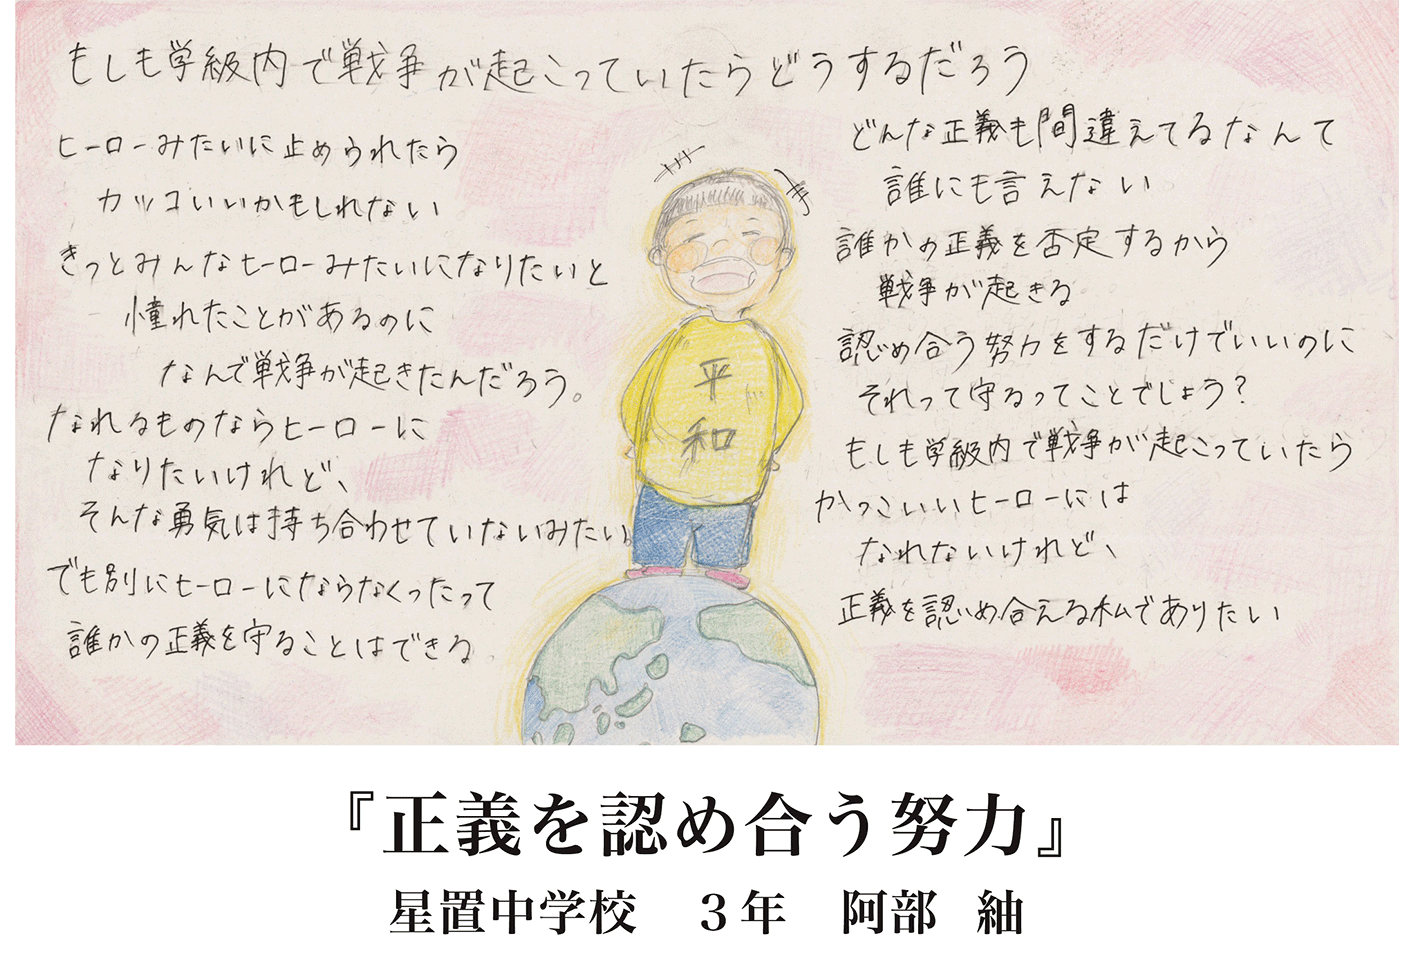 もしも学級内で戦争が起こっていたらどうするだろう
ヒーローみたいに止められたら
カッコいいかもしれない
きっとみんなヒーローみたいになりたいと
憧れたことがあるのに
なんで戦争が起きたんだろう。
なれるものならヒーローに
なりたいけれど、
そんな勇気は持ち合わせていないみたい。
でも別にヒーローにならなくったって
誰かの正義を守ることはできる。
どんな正義も間違えてるなんて
誰にも言えない。
誰かの正義を否定するから
戦争が起きる
認め合う努力をするだけでいいのに
それって守るってことでしょう？
もしも学級内で戦争が起こっていたら
かっこいいヒーローには
なれないけれど、
正義を認め合える私でありたい
平和
『正義を認め合う努力』
星置中学校　３年　阿部　紬